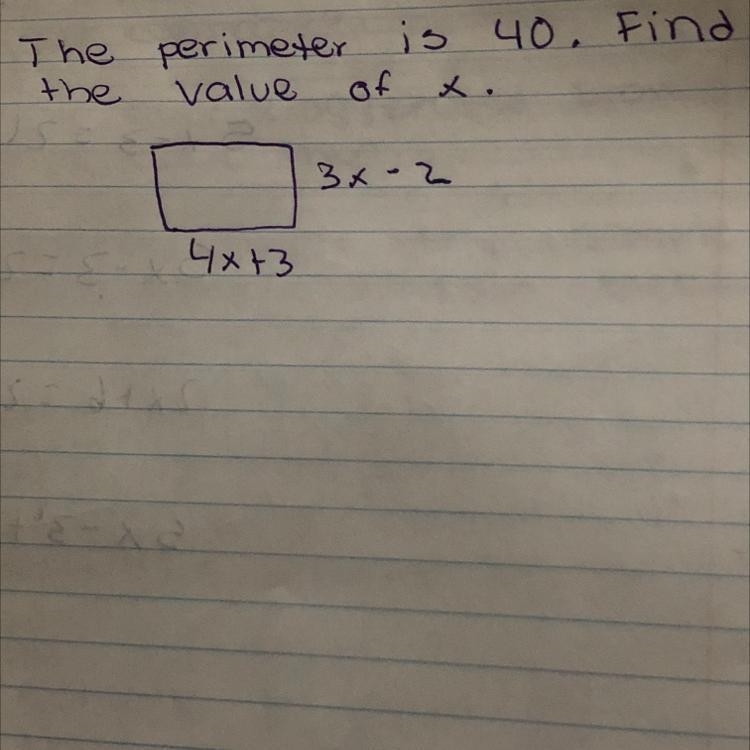 The perimeter is 40. Find
the value of x.
3x - 2
4x+3